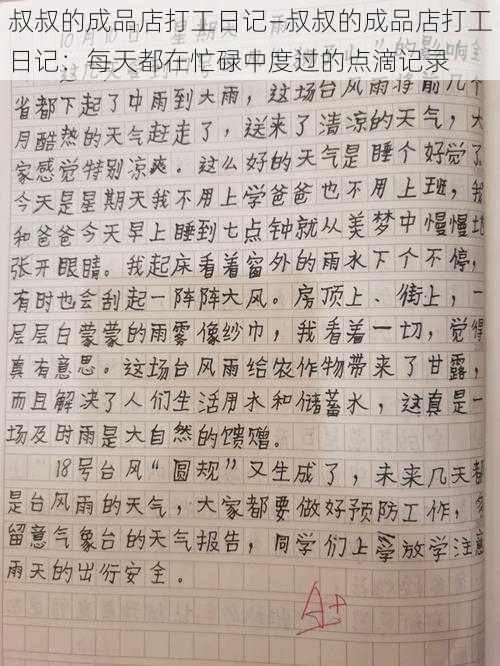 叔叔的成品店打工日记—叔叔的成品店打工
日记：每天都在忙碌中度过的点滴记录
省都下起了中雨到大雨，这场台风雨将前几个
月酷热的天气赶走了，送来了清凉的天气，大
家感觉特别凉爽。这么好的天气是睡个好觉了。
今天是星期天我不用上学爸爸也不用上班，我
和爸爸今天早上睡到七点钟就从美梦中慢慢地
张开眼睛。我起床看着窗外的雨水下个不停，
有时也会刮起一阵阵大风。房顶上、街上，一
层层白蒙蒙的雨雾像纱巾，我看着一切，觉得
真有意思。这场台风雨给农作物带来了甘露，
而且解决了人们生活用水和储蓄水，这真是一
场及时雨是大自然的馈赠。
18号台风“圆规”又生成了，未来几天都
是台风雨的天气，大家都要做好预防工作，
留意气象台的天气报告，同学们上学放学注意
雨天的出行安全。
A+